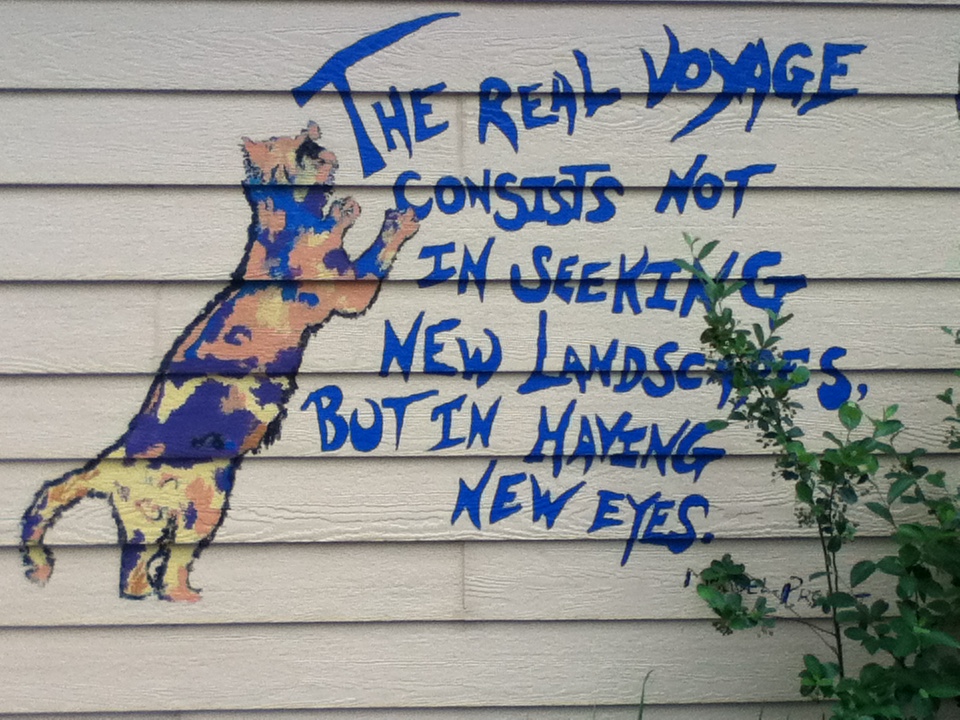 THE REAL VOYAGE
CONSISTS NOT
IN SEEKING
NEW LANDSCAPES,
BUT IN HAVING
NEW EYES.